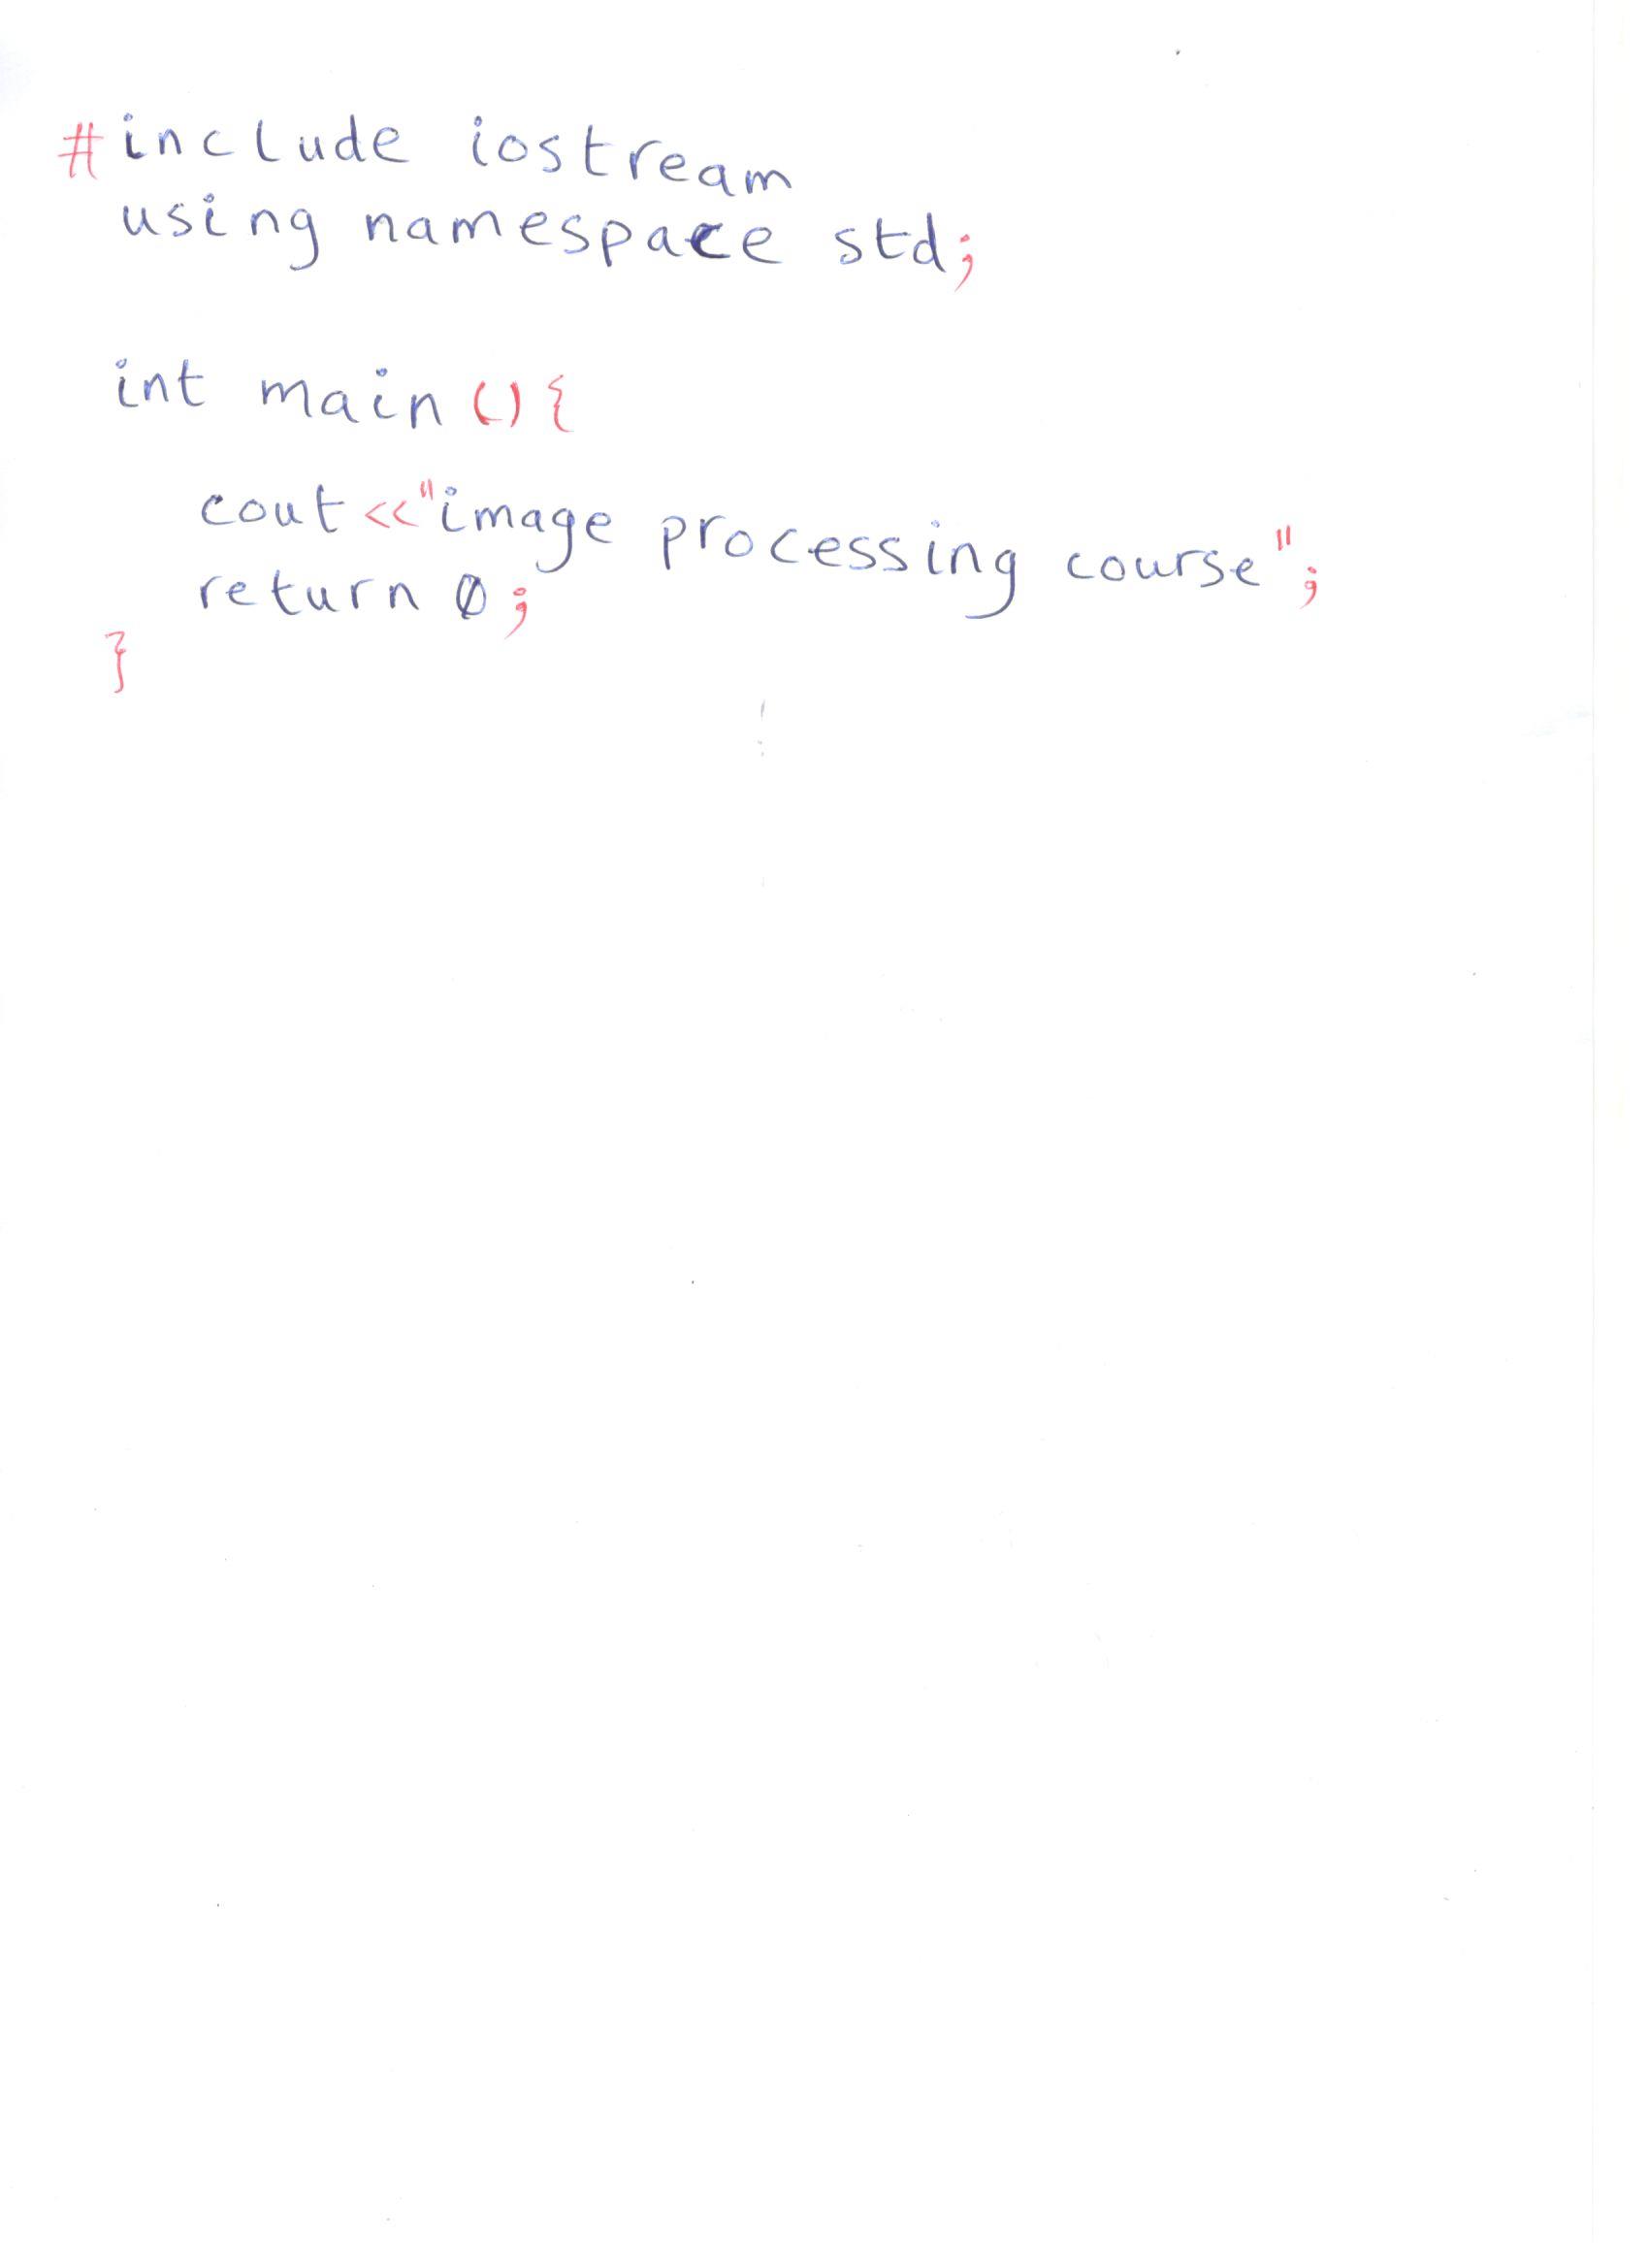 #include iostream
using namespace std;
int main(){
cout<<"image processing course";
return 0;
}